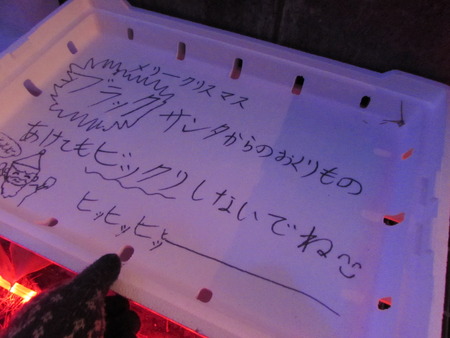 メリークリスマス
ブラックサンタからのおくりもの
あけてもビックリしないでね
ヒッヒッヒッー